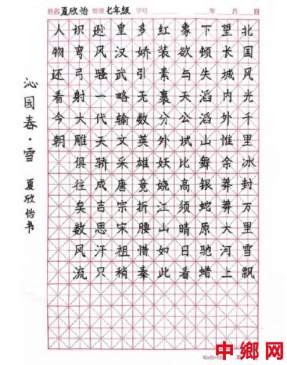 姓名 夏欣怡 班级 七年级 学号 年 月 日
北国风光千里冰封万里雪飘
望长城内外惟余莽莽大河上
下顿失滔滔山舞银蛇原驰蜡
象欲与天公试比高须晴日看
红装素裹分外妖娆江山如此
多娇引无数英雄竞折腰惜秦
皇汉武略输文采唐宗宋祖稍
逊风骚一代天骄成吉思汗只
识弯弓射大雕俱往矣数风流
人物还看今朝
沁园春·雪
夏欣怡书
中鄉网